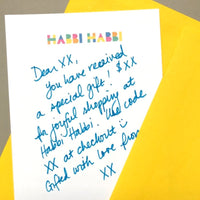 HABBI HABBI
Dear XX,
You have received
a special gift! $XX
for joyful shopping at
Habbi Habbi. Use code
XX at checkout
Gifted with love from
XX